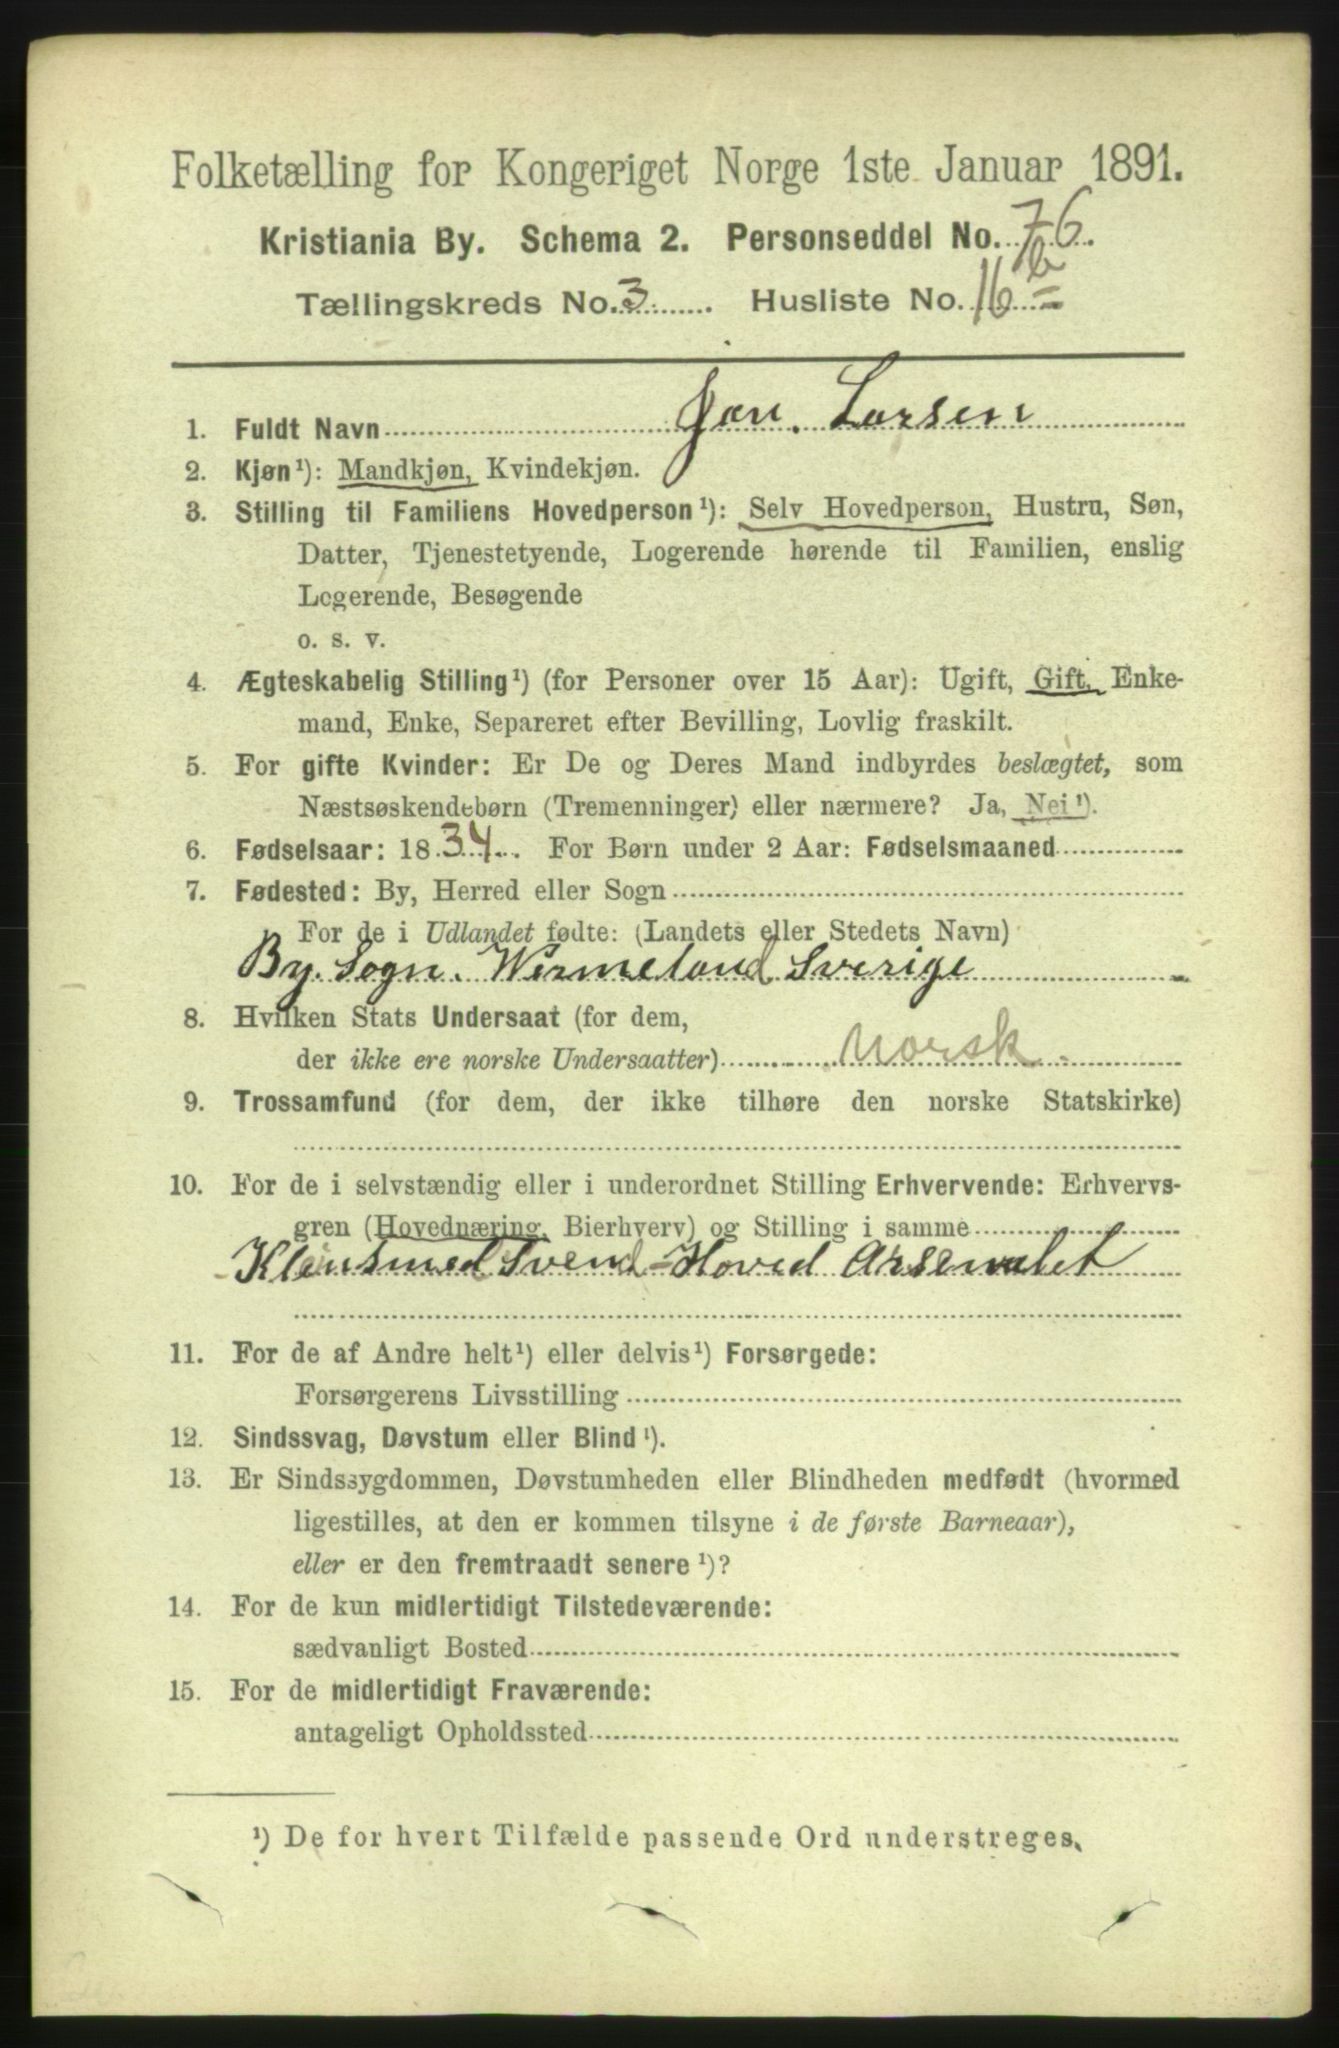 Folketælling for Kongeriget Norge 1ste Januar 1891.
Kristiania By. Schema 2. Personseddel No. 76.
Tællingskreds No. 3 Husliste No. 16 b
1. Fuldt Navn Jan. Larsen
2. Kjøn¹): Mandkjøn, Kvindekjøn.
3. Stilling til Familiens Hovedperson¹): Selv Hovedperson, Hustru, Søn,
Datter, Tjenestetyende, Logerende hørende til Familien, enslig
Logerende, Besøgende
o. s. v.
4. Ægteskabelig Stilling¹) (for Personer over 15 Aar): Ugift, Gift, Enke-
mand, Enke, Separeret efter Bevilling, Lovlig fraskilt.
5. For gifte Kvinder: Er De og Deres Mand indbyrdes beslægtet, som
Næstsøskendebørn (Tremenninger) eller nærmere? Ja, Nei¹).
6. Fødselsaar: 1834. For Børn under 2 Aar: Fødselsmaaned
7. Fødested: By, Herred eller Sogn
For de i Udlandet fødte: (Landets eller Stedets Navn)
By. Sogn. Wermeland Sverige
8. Hvilken Stats Undersaat (for dem,
der ikke ere norske Undersaatter) Norsk.
9. Trossamfund (for dem, der ikke tilhøre den norske Statskirke)
10. For de i selvstændig eller i underordnet Stilling Erhvervende: Erhvervs-
gren (Hovednæring, Bierhverv) og Stilling i samme
Kleinsmed Svend - Hoved Arsenalet
11. For de af Andre helt¹) eller delvis¹) Forsørgede:
Forsørgerens Livsstilling
12. Sindssvag, Døvstum eller Blind¹).
13. Er Sindssygdommen, Døvstumheden eller Blindheden medfødt (hvormed
ligestilles, at den er kommen tilsyne i de første Barneaar),
eller er den fremtraadt senere¹)?
14. For de kun midlertidigt Tilstedeværende:
sædvanligt Bosted
15. For de midlertidigt Fraværende:
antageligt Opholdssted
¹) De for hvert Tilfælde passende Ord understreges.